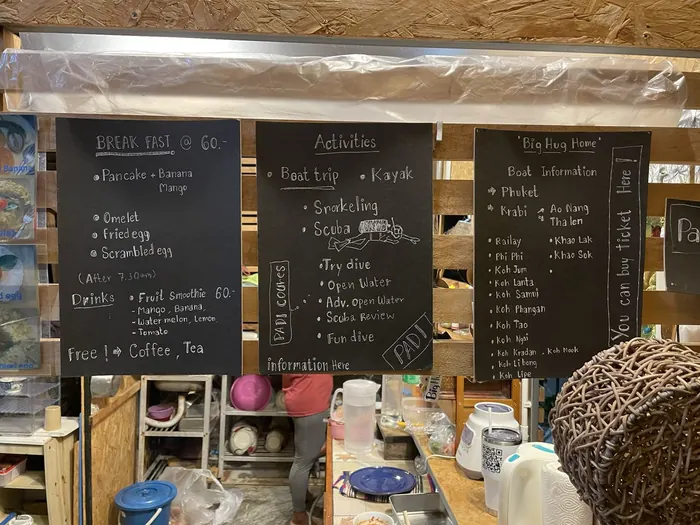 BREAK FAST @ 60.-
Pancake + Banana
Mango
Omelet
Fried egg
Scrambled egg
(After 7.30am)
Drinks
Fruit Smoothie 60.-
- Mango, Banana,
- Water melon, Lemon
- Tomato
Free! → Coffee, Tea
Activities
Boat trip
Kayak
Snorkeling
Scuba
PADI COURCES
Try dive
Open Water
Adv. Open Water
Scuba Review
Fun dive
PADI
information Here
"Big Hug Home"
Boat Information
Phuket
Krabi
Ao Nang
Tha len
Railay
Phi Phi
Koh Jum
Koh Lanta
Koh Samui
Koh Phangan
Koh Tao
Koh Ngai
Koh Kradan . Koh Mook
Koh Libong
Koh Lipe
Khao Lak
Khao Sok
You can buy ticket Here!
Pa
Banana